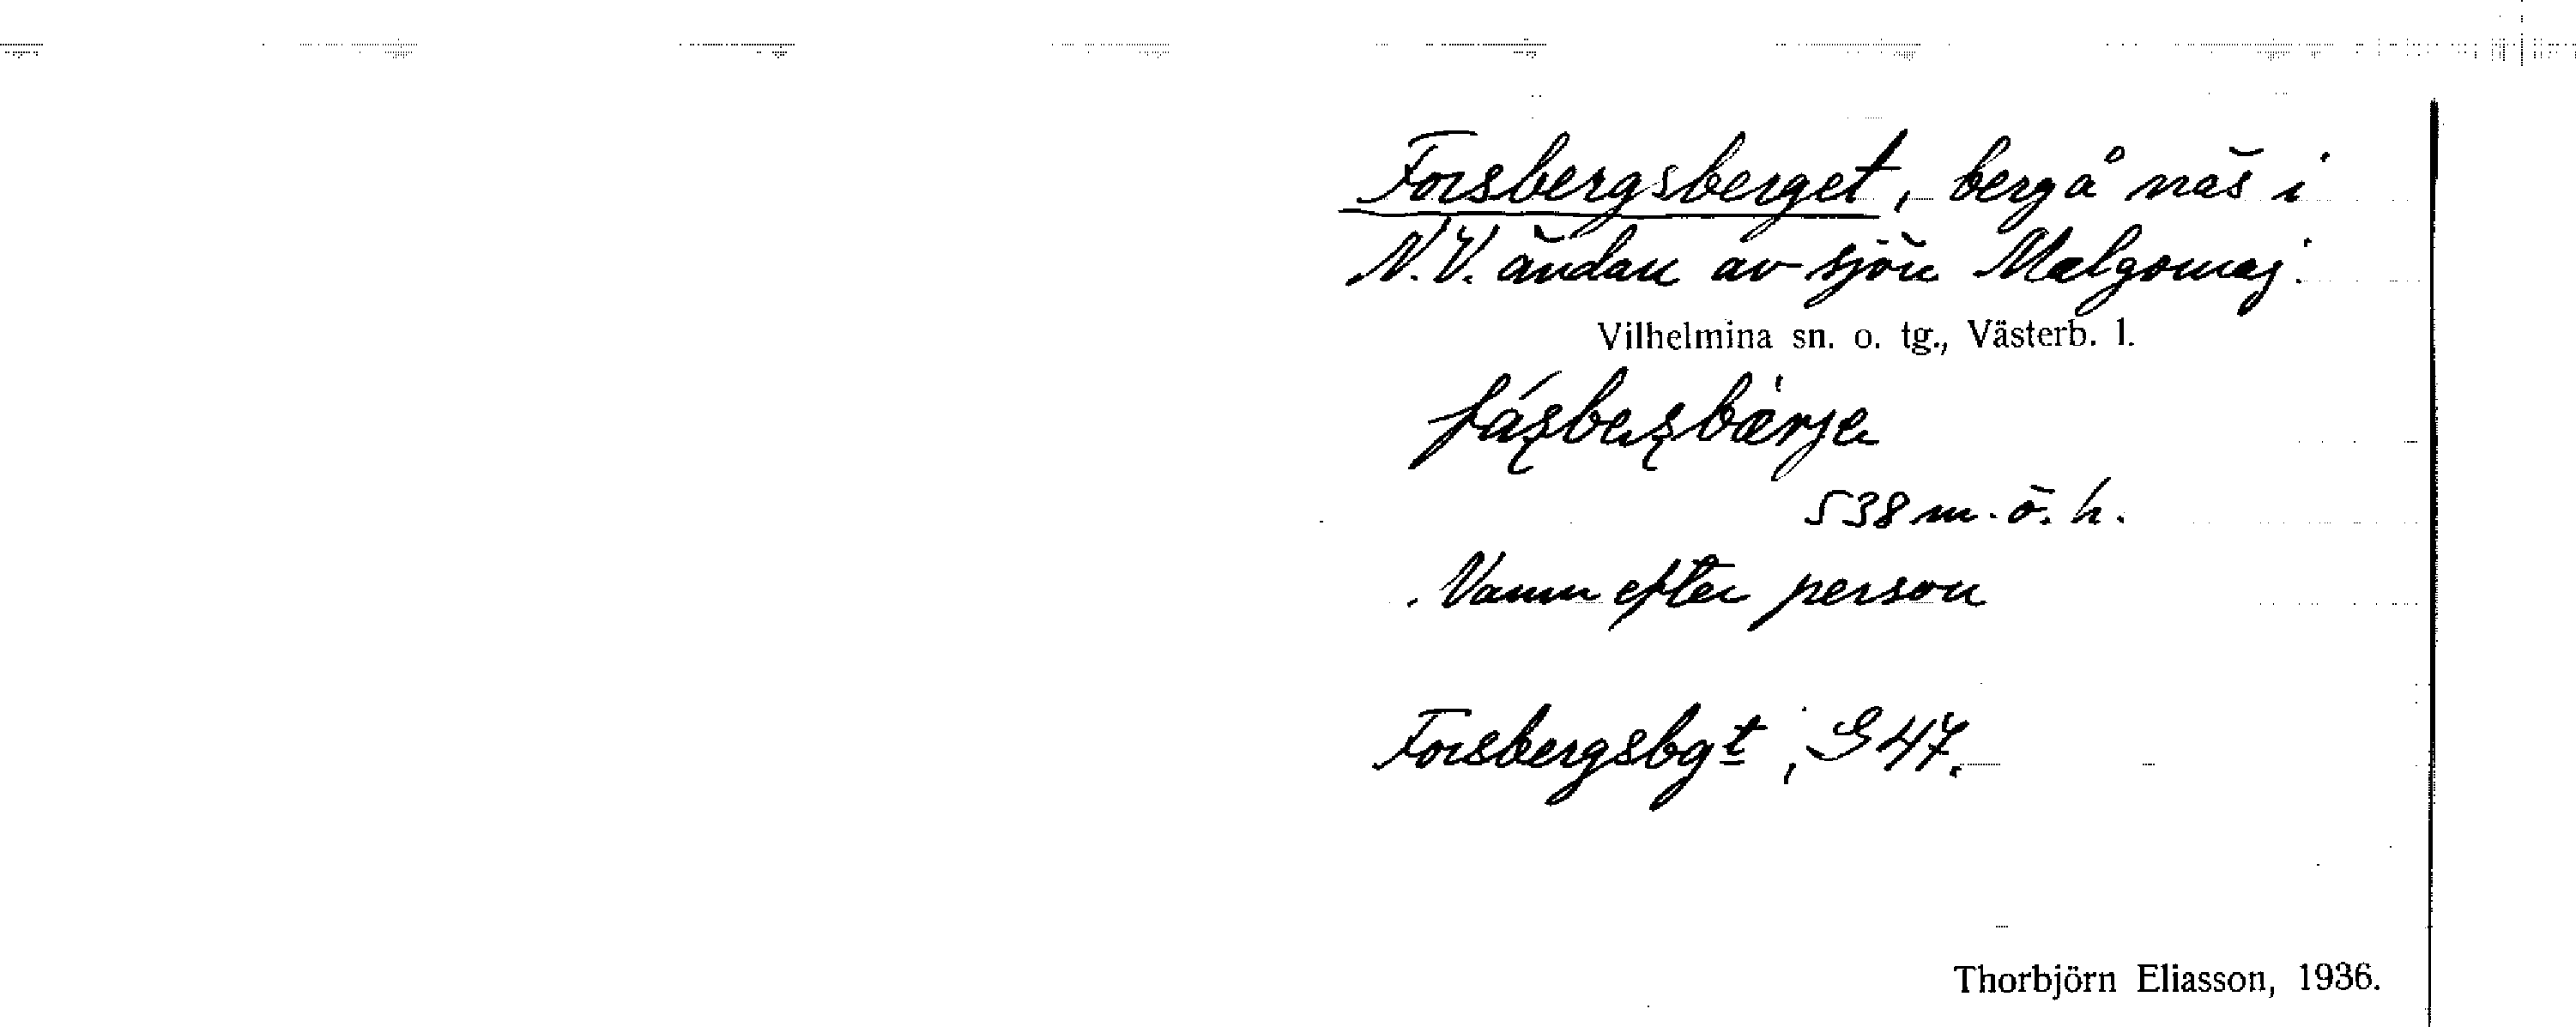 Forsbergsberget, berg å näs i
N.V. ändan av sjön Malgomaj.
Vilhelmina sn. o. tg., Västerb. l.
538 m. ö. h.
Namn efter person
Forsbergsbgt, G 47.
Thorbjörn Eliasson, 1936.